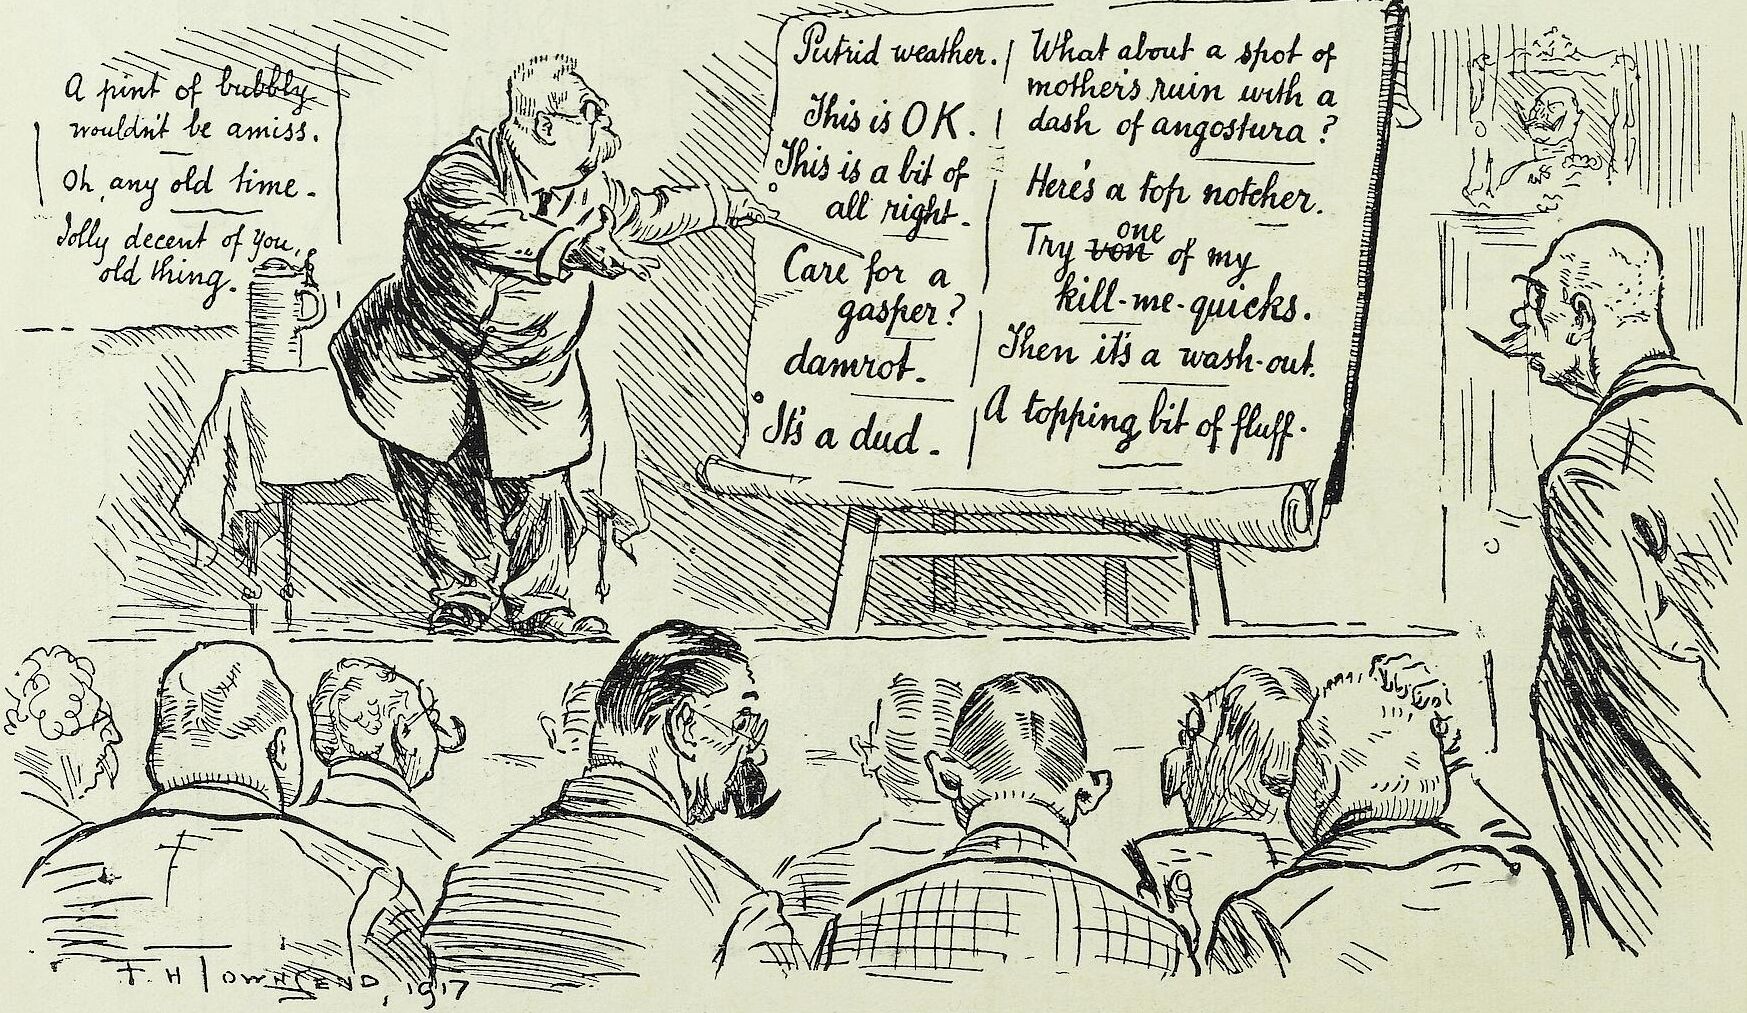 A pint of bubbly
wouldn't be amiss.
Oh, any old time.
Jolly decent of you,
old thing.
Putrid weather.
This is OK.
This is a bit of
all right.
Care for a
gasper?
damrot.
It's a dud.
What about a spot of
mother's ruin with a
dash of angostura?
Here's a top notcher.
Try von one of my
kill-me-quicks.
Then it's a wash-out.
A topping bit of fluff.
F. H. TOWNSEND, 1917